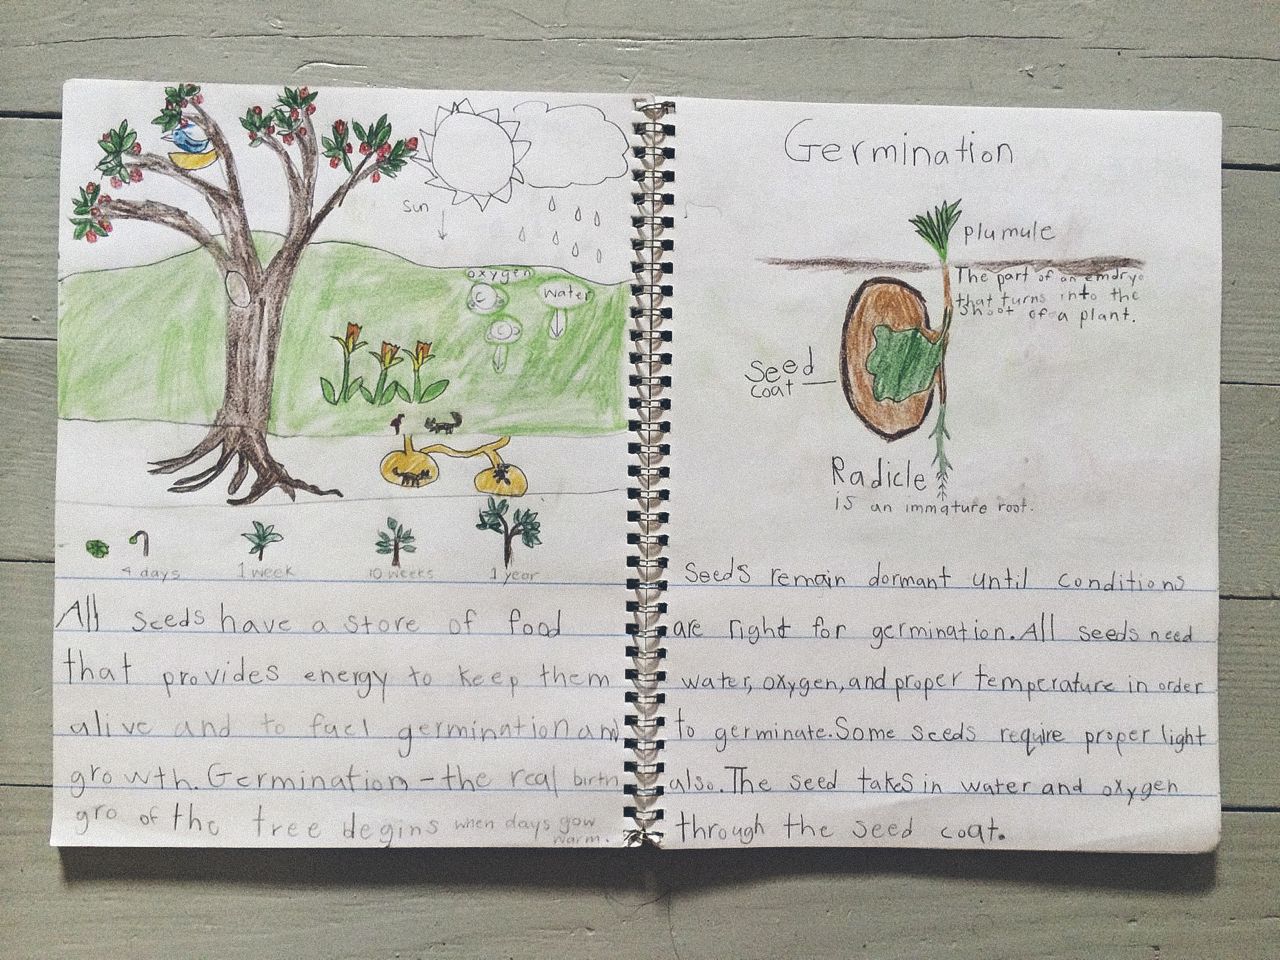 sun
oxygen
C
water
C
4 days
1 week
10 weeks
1 year
All seeds have a store of food
that provides energy to keep them
alive and to fuel germination and
growth. Germination - the real birth
gro of the tree begins when days gow
warm.
Germination
plumule
The part of an emdryo
that turns into the
shoot of a plant.
seed
coat
Radicle
is an immature root.
seeds remain dormant until conditions
are right for germination. All seeds need
water, oxygen, and proper temperature in order
to germinate. Some seeds require proper light
also. The seed takes in water and oxygen
through the seed coat.